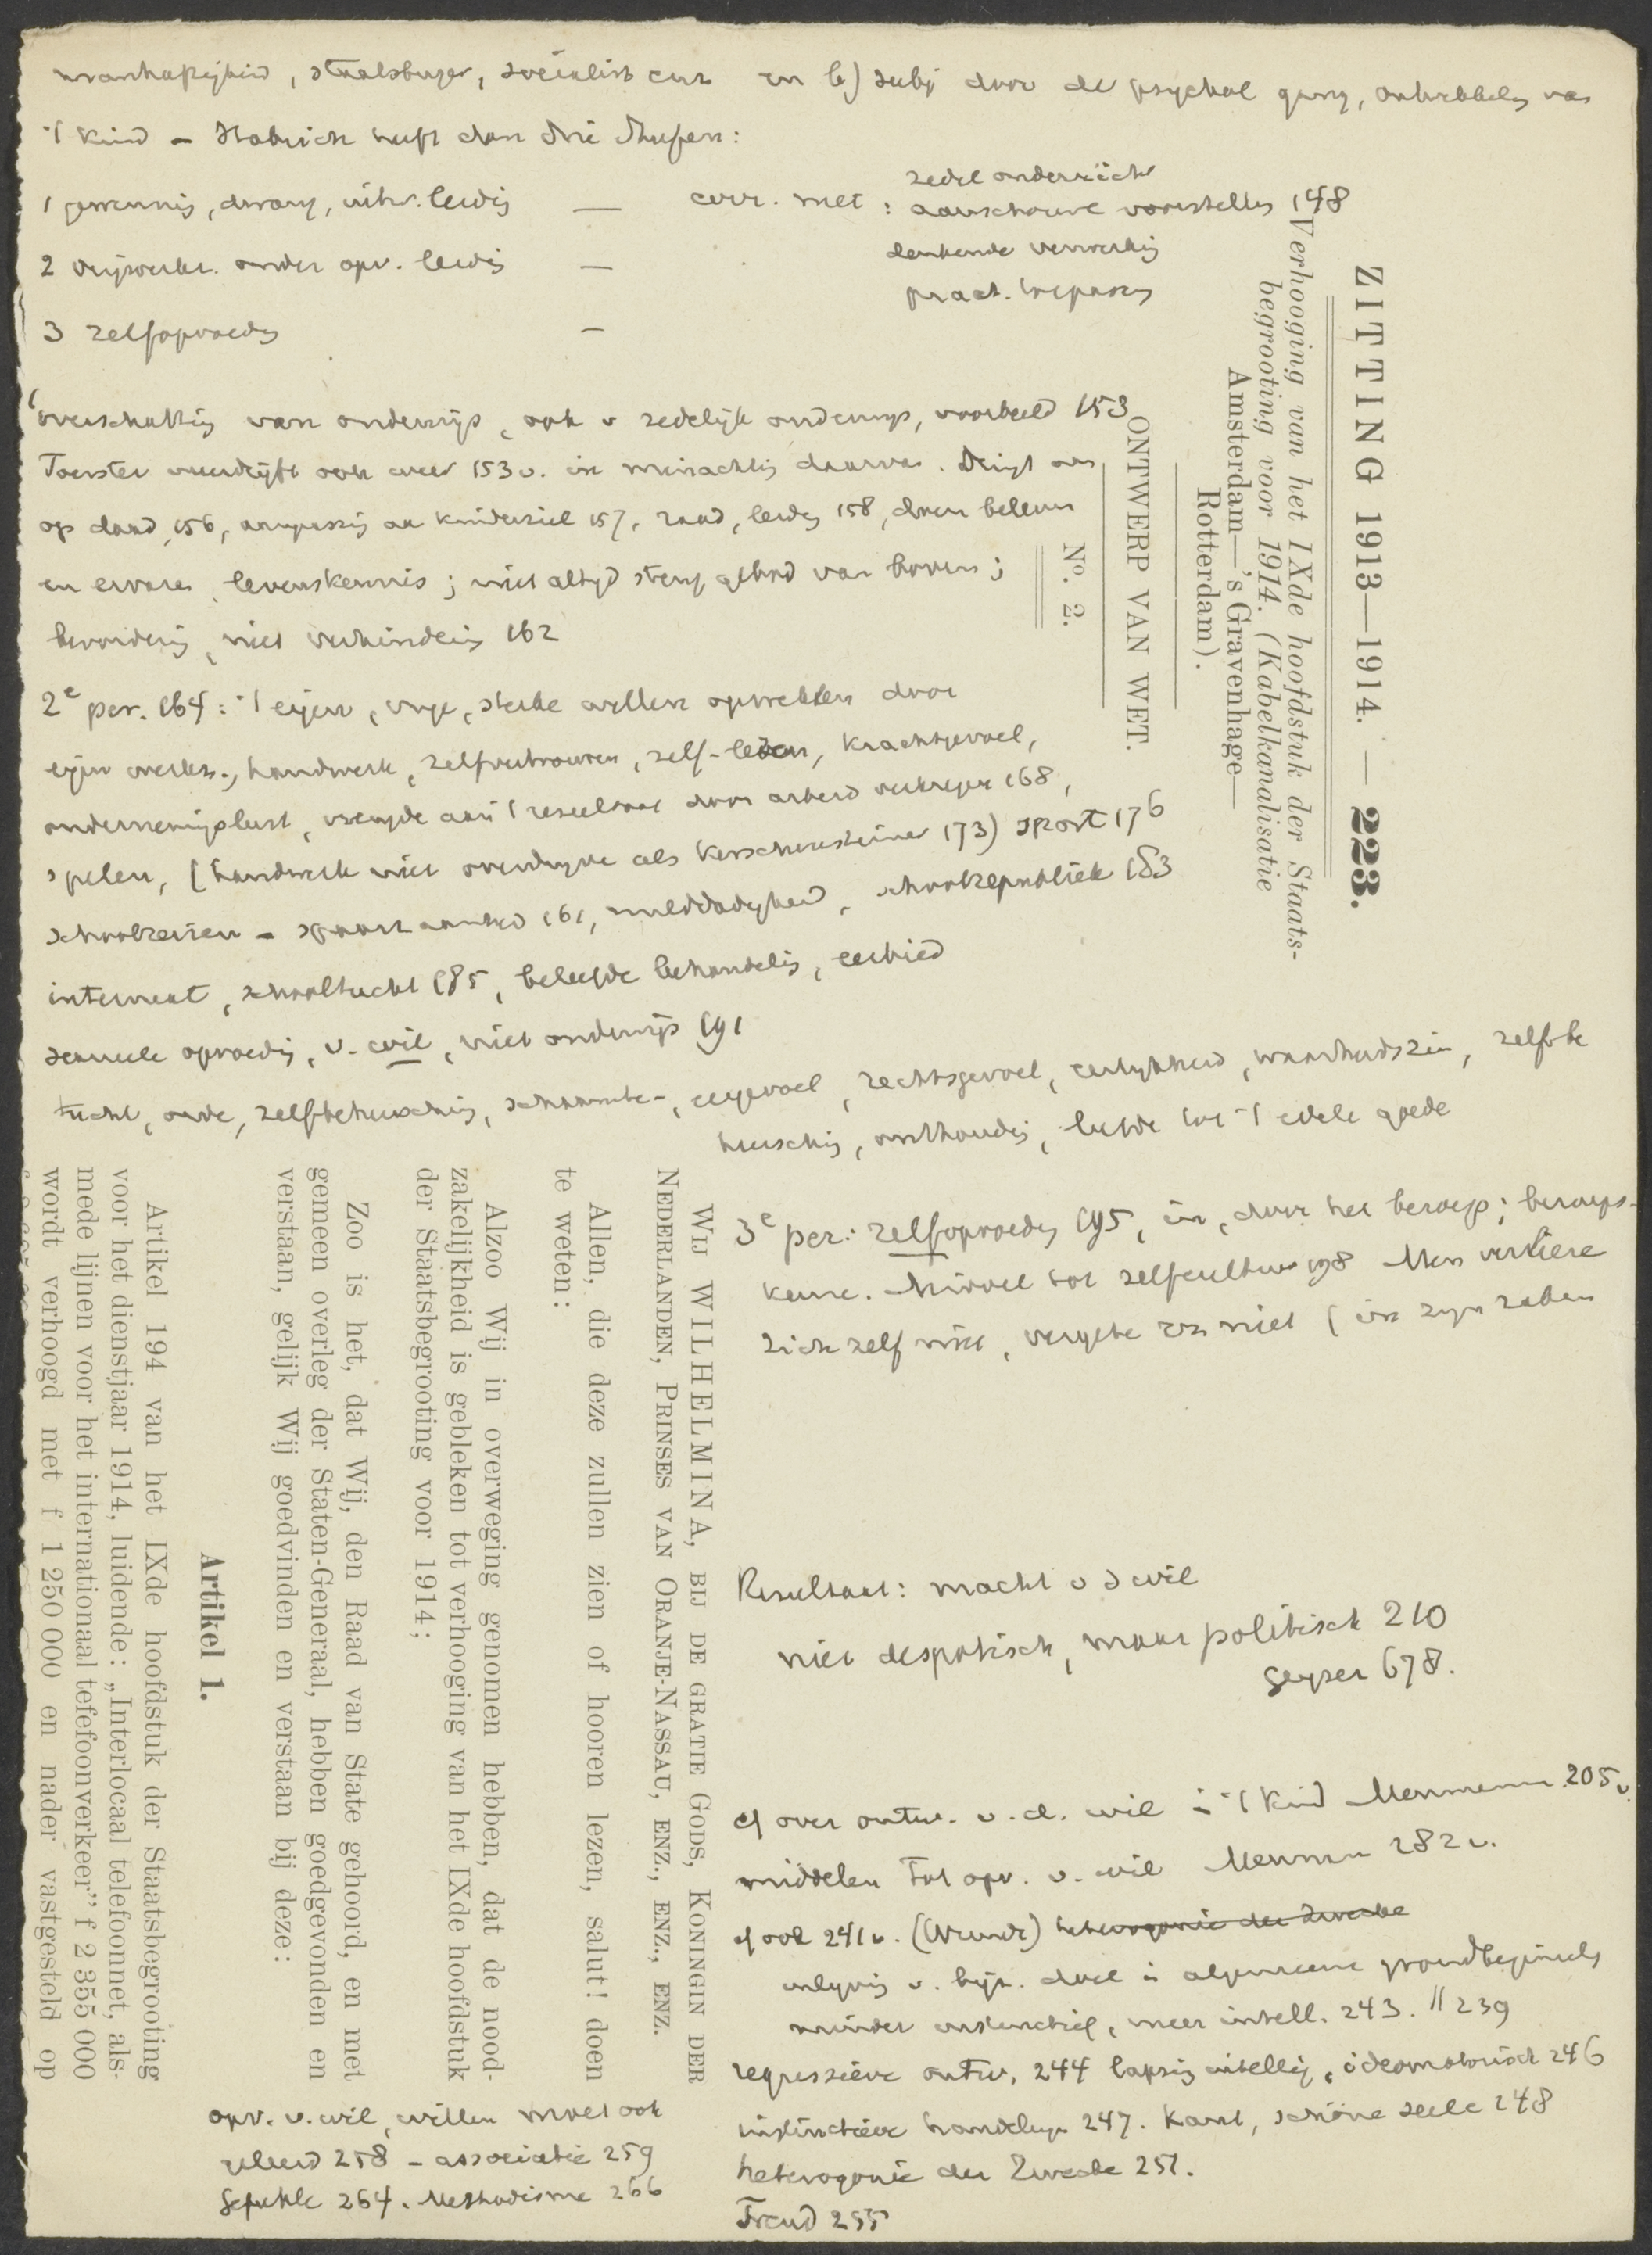 staatsburger, socialist enz en b) subj door de psychol gang, ontwikkeling van
't kind – Habrich heeft dan drie Stufen:
1 gewenning, dwang, uitw. leiding — corr. met: zedel onderricht
aanschouwe voorstelling 148
2 vrijwerk. onder opv. leiding — denkende verwerking
pract. toepassing
3 zelfopvoeding —
overschatting van onderwijs, ook v zedelijk onderwijs, voorbeeld 153
Foerster overdrijft ook weer 153v. in minachting daarvan. Dringt aan
op daad 156, aanpassing aan kinderziel 157, raad, leiding 158, doen beleven
en ervaren, levenskennis; niet altijd streng gebod van boven;
bevordering, niet verhindering 162
2e per. 164: 't eigen, vrije, sterke willen opwekken door
eigen werkz., handwerk, zelfvertrouwen, zelf-leiden, krachtgevoel,
ondernemingslust, vreugde aan 't resultaat door arbeid verkregen 168,
spelen, (handwerk niet overdrijven als Kerschensteiner 173) sport 176
schoolreizen – 161, milddadigheid, schoolrepubliek 183
internaat, schooltucht 185, beleefde behandeling, eerbied
sexueele opvoeding, v. wil, niet onderwijs 191
tucht, orde, zelfbeheersching, schaamte-, eergevoel, rechtsgevoel, eerlijkheid, waarheidszin, zelfbe
heersching, onthouding, liefde tot 't edele goede
3e per.: zelfopvoeding 195, in, door het beroep; beroeps-
keuze. Middel tot zelfcultuur 198 Men verlieze
zich zelf niet, vergete zich niet (in zijn zaken
Resultaat: macht v d wil
niet despotisch, maar politisch 210
Geyser 678.
cf over ontw. v. d. wil in 't kind Meumann 205v.
middelen tot opv. v. wil Meumann 282v.
cf ook 241v. (Wundt) heterogonie der Zwecke
v. bijz. doel in algemeene grondbeginsels
minder instinctief, meer intell. 243. || 239
regressieve ontw. 244 intellig, ideomotorisch 246
instinctieve handelingen 247. Kant, schöne Seele 248
heterogonie der Zwecke 251.
Freud 255
opv. v. wil, willen moet ook
geleerd 258 – associatie 259
Gefühle 264. Methodisme 266
ZITTING 1913—1914. — 223.
Verhooging van het IXde hoofdstuk der Staats-
begrooting voor 1914. (Kabelkanalisatie
Amsterdam—'s Gravenhage—
Rotterdam).
ONTWERP VAN WET.
No. 2.
WIJ WILHELMINA, BIJ DE GRATIE GODS, KONINGIN DER
NEDERLANDEN, PRINSES VAN ORANJE-NASSAU, ENZ., ENZ., ENZ.
Allen, die deze zullen zien of hooren lezen, salut! doen
te weten:
Alzoo Wij in overweging genomen hebben, dat de nood-
zakelijkheid is gebleken tot verhooging van het IXde hoofdstuk
der Staatsbegrooting voor 1914;
Zoo is het, dat Wij, den Raad van State gehoord, en met
gemeen overleg der Staten-Generaal, hebben goedgevonden en
verstaan, gelijk Wij goedvinden en verstaan bij deze:
Artikel 1.
Artikel 194 van het IXde hoofdstuk der Staatsbegrooting
voor het dienstjaar 1914, luidende: „Interlocaal telefoonnet, als-
mede lijnen voor het internationaal telefoonverkeer” f 2 355 000
wordt verhoogd met f 1 250 000 en nader vastgesteld op